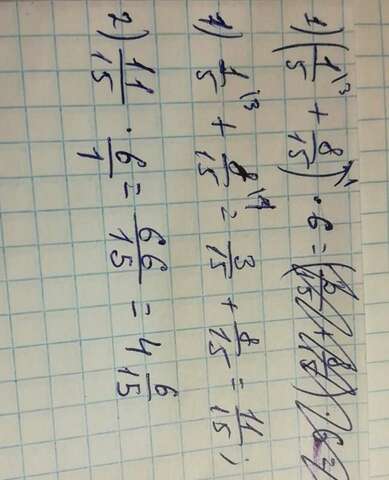 1) (1/5\3 + 8/15\1) · 6 =
1) 1/5\3 + 8/15\1 = 3/15 + 8/15 = 11/15;
2) 11/15 · 6/1 = 66/15 = 4 6/15